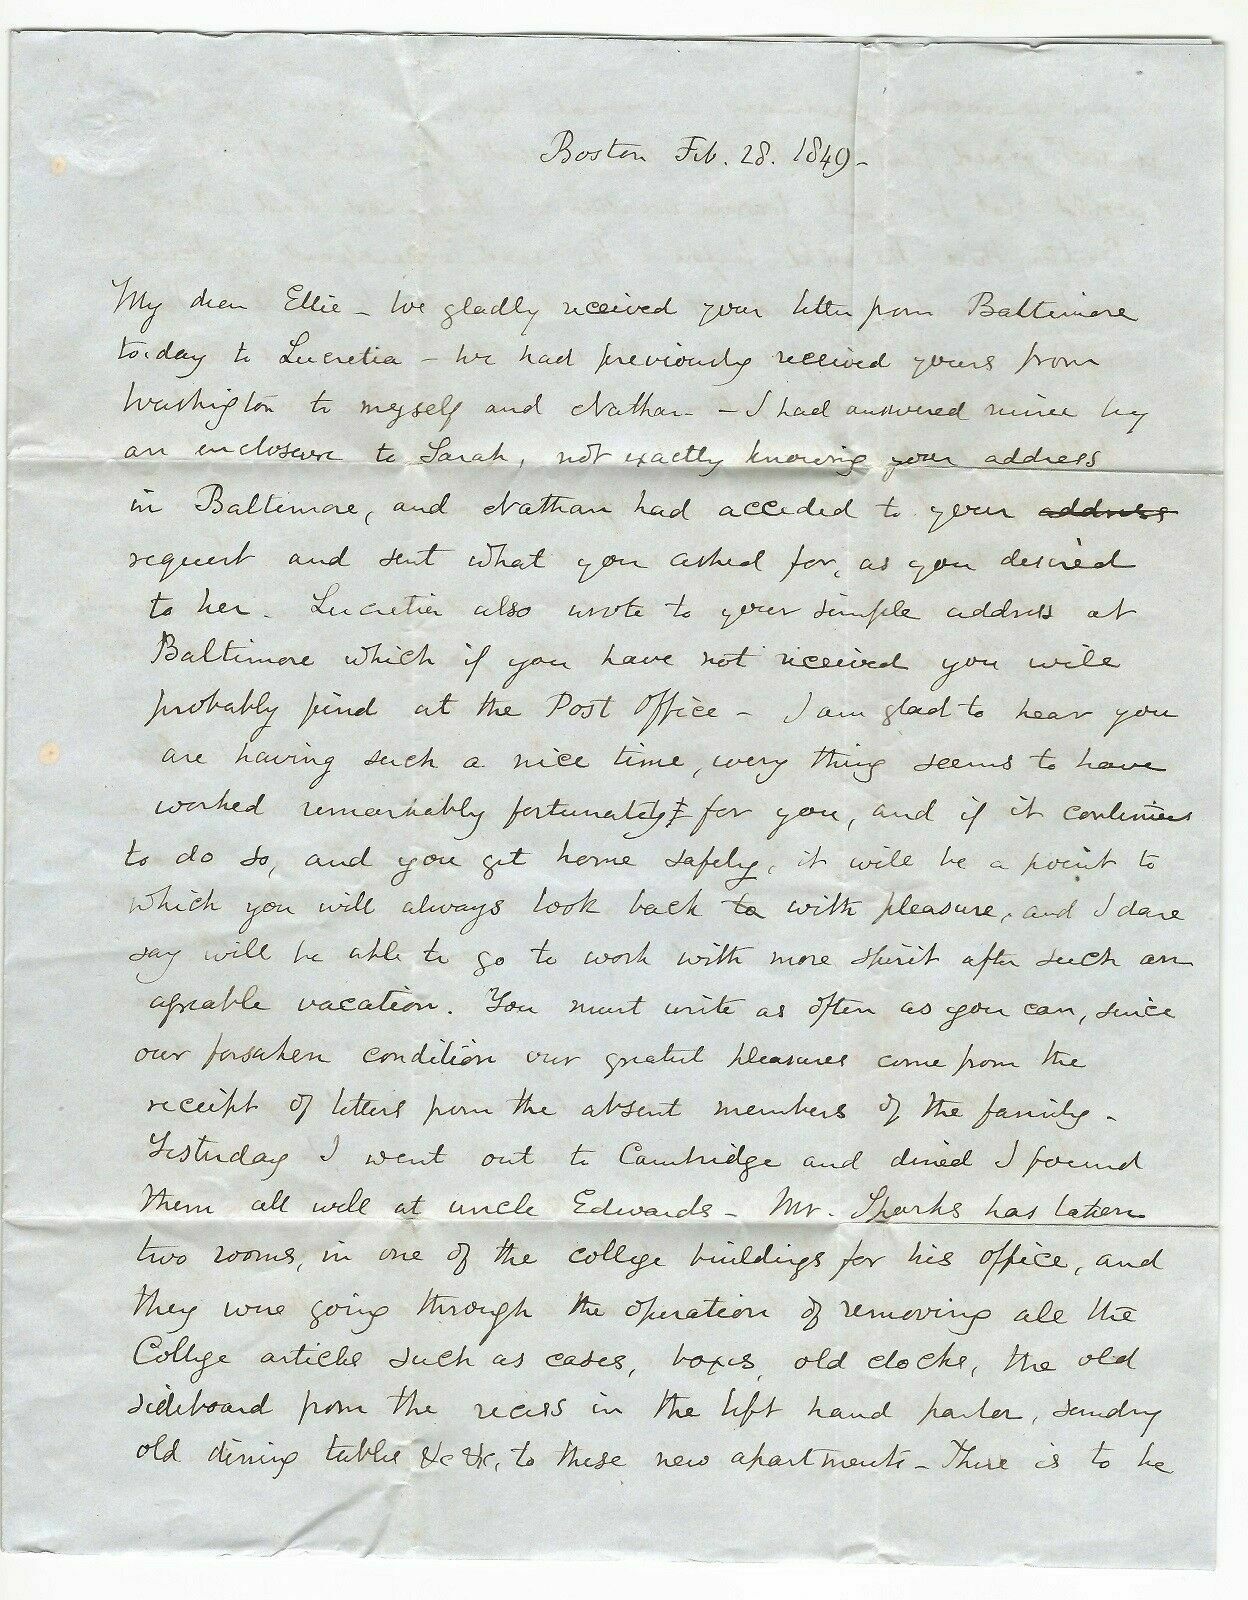 Boston Feb. 28. 1849 -
My dear Ellie - We gladly received your letter from Baltimore
to-day to Lucretia - We had previously received yours from
Washington to myself and Nathan - - I had answered mine by
an enclosure to Sarah, not exactly knowing your address
in Baltimore, and Nathan had acceded to your address
request and sent what you asked for, as you desired
to her. Lucretia also wrote to your simple address at
Baltimore which if you have not received you will
probably find at the Post Office - I am glad to hear you
are having such a nice time, every thing seems to have
worked remarkably fortunately for you, and if it continues
to do so, and you get home safely, it will be a point to
which you will always look back to with pleasure, and I dare
say will be able to go to work with more spirit after such an
agreable vacation. You must write as often as you can, since
our forsaken condition our greatest pleasures come from the
receipt of letters from the absent members of the family -
Yesterday I went out to Cambridge and dined I found
them all well at uncle Edwards - Mr. Sparks has taken
two rooms, in one of the college buildings for his office, and
they were going through the operation of removing all the
College articles such as cases, boxes, old clocks, the old
sideboard from the recess in the left hand parlor, sundry
old dining tables &c &c, to these new apartments - There is to be